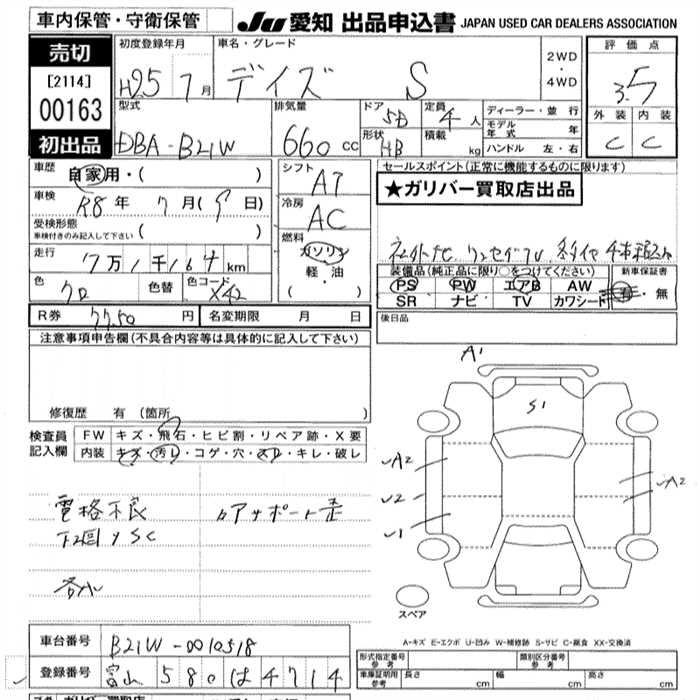 車内保管・守衛保管
JU 愛知 出品申込書 JAPAN USED CAR DEALERS ASSOCIATION
売切
[2114]
00163
初出品
初度登録年月
H25 7月
車名・グレード
デイズ S
2WD
・
4WD
評価点
3.5
外装 内装
C C
型式
DBA-B21W
排気量
660 cc
ドア
5D
定員
4人
形状
HB
積載
kg
ディーラー・並行
モデル年式 年
ハンドル 左・右
車歴
自家用・( )
車検
R8年 7月(9日)
受検形態
車検付きのみ記入して下さい ( )
走行
7万1千164km
色
クロ
色替
色コード
X42
シフト
AT
冷房
AC
燃料
ガソリン
軽・油
( ・ )
セールスポイント(正常に機能するものに限ります)
★ガリバー買取店出品
社外ナビ ワンセグTV
装備品(純正品に限り○をつけてください)
PS PW エアB AW
SR ナビ TV カワシート
新車保証書
有・無
R券 7750円
名変期限 月 日
後日品
注意事項申告欄(不具合内容等は具体的に記入して下さい)
修復歴 有(箇所 )
検査員
記入欄
FW キズ・飛石・ヒビ割・リペア跡・X要
内装 キズ・汚レ・コゲ・穴・スレ・キレ・破レ
電格不良
下廻りSC
各小
A1
S1
A2
U2
U1
A2
スペア
A-キズ E-エクボ U-凹み W-補修跡 S-サビ C-腐食 XX-交換済
車台番号 B21W-0010518
登録番号 富山 580 は 4714
形式指定番号
参考
類別区分番号
参考
車庫証明用
参考
長さ cm
幅 cm
高さ cm